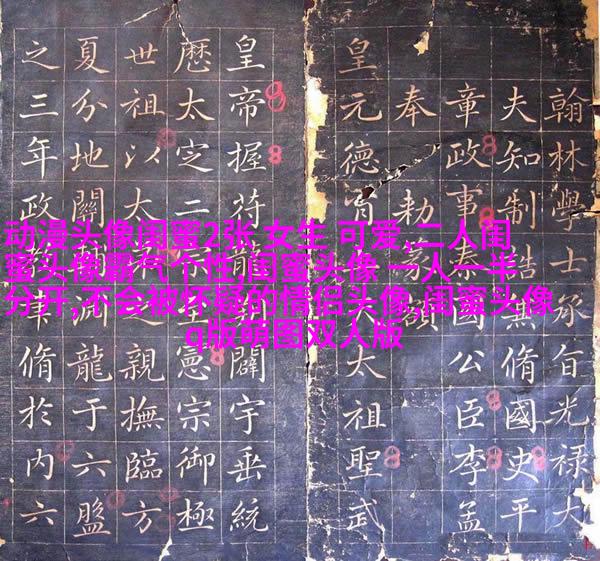 翰林學士承旨光祿大
夫知制誥兼脩國史平
章政事秦國公臣李孟
奉敕額
皇元德太祖聖武
皇帝握符闢宇垂統
厯太㝎二憲宗御極
世祖以親撫臨方
夏分地關淵龍于六盤
之三年政脩於内六
动漫头像闺蜜2张 女生 可爱,二人闺
蜜头像霸气个性,闺蜜头像 一人一半
分开,不会被怀疑的情侣头像,闺蜜头像
q版萌图双人版